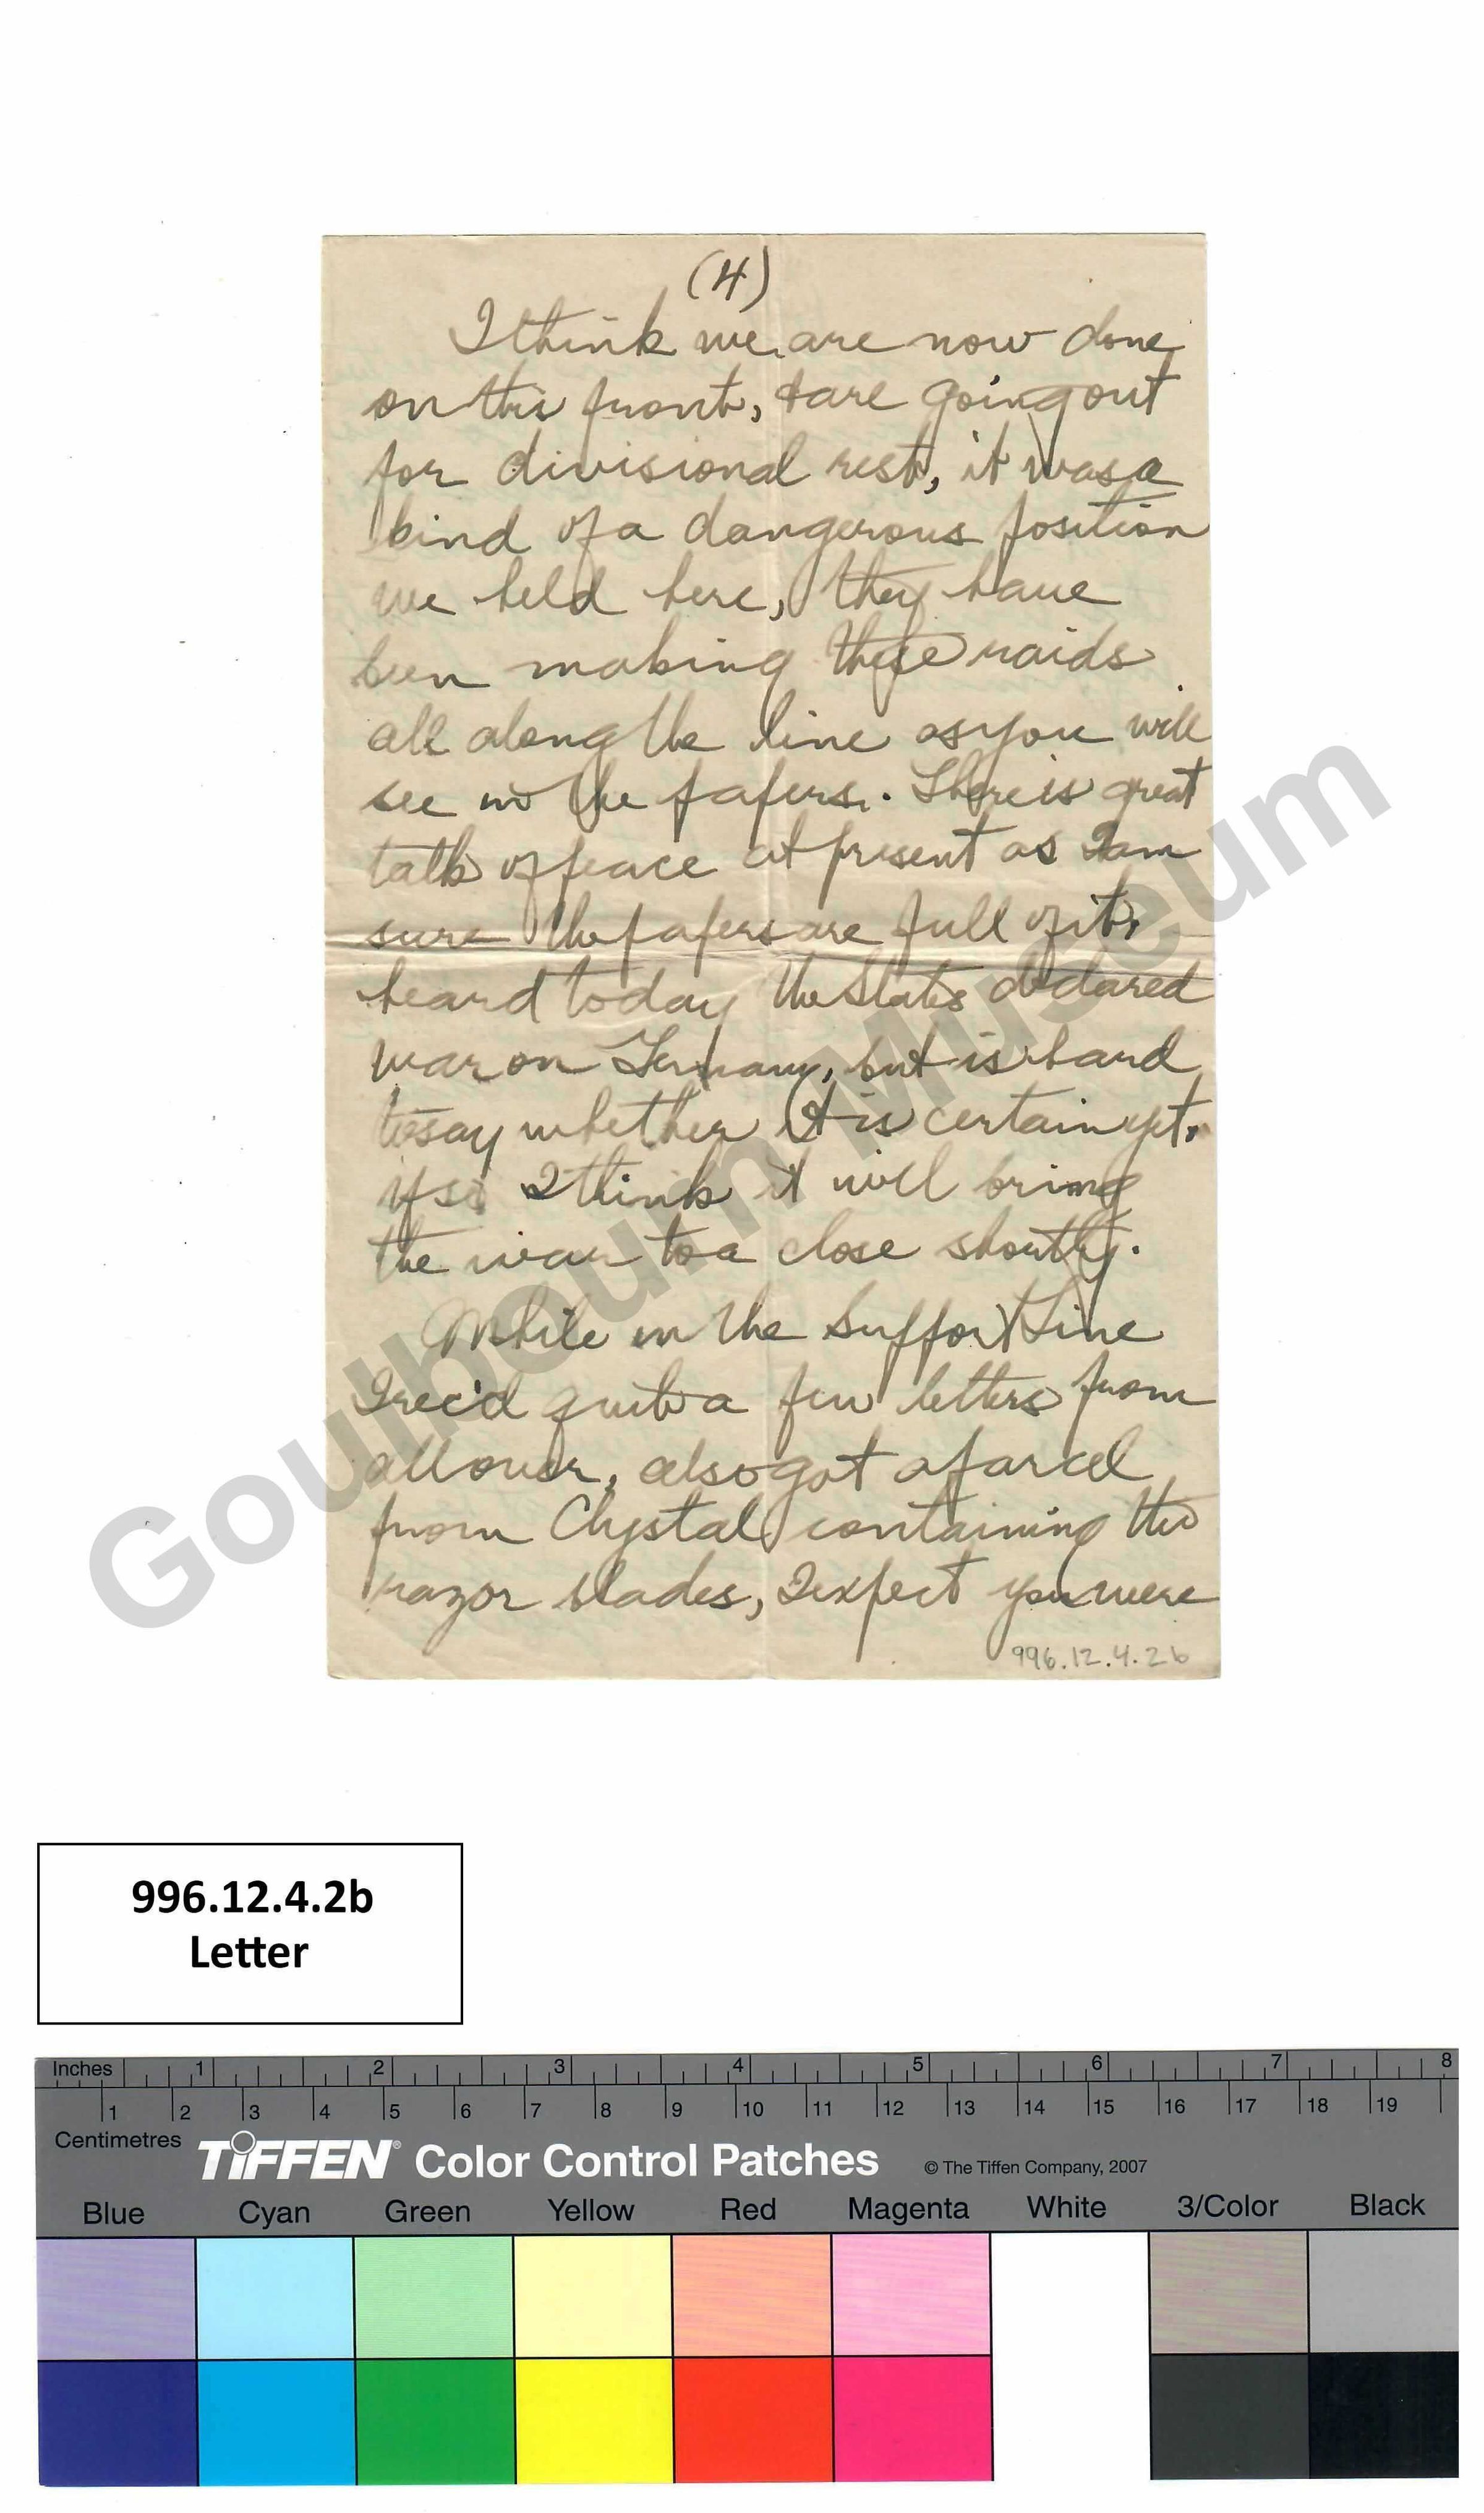 (4)
I think we are now done
on this front, & are going out
for divisional rest, it was a
kind of a dangerous position
we held here, they have
been making these raids
all along the line as you will
see in the papers. There is great
talk of peace at present as I am
sure the papers are full of it,
heard today the States declared
war on Germany, but is hard
to say whether it is certain yet,
if so I think it will bring
the war to a close shortly.
While in the Support Line
I rec'd quite a few letters from
all over, also got a parcel
from Chystal containing the
razor blades, I expect you were
996.12.4.2b
Goulbourn Museum
996.12.4.2b
Letter
Inches 1 2 3 4 5 6 7 8
1 2 3 4 5 6 7 8 9 10 11 12 13 14 15 16 17 18 19
Centimetres
TIFFEN® Color Control Patches © The Tiffen Company, 2007
Blue Cyan Green Yellow Red Magenta White 3/Color Black